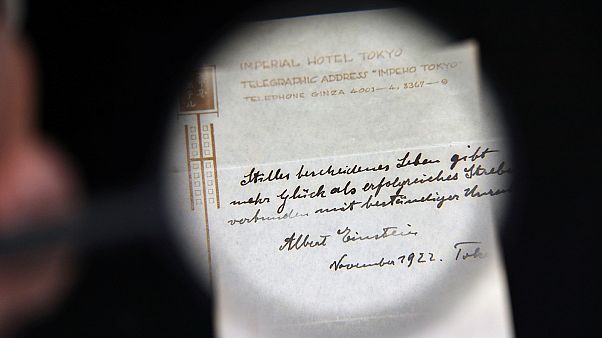 IMPERIAL HOTEL TOKYO
TELEGRAPHIC ADDRESS "IMPEHO TOKYO"
TELEPHONE GINZA 4001-4, 8367-9
Stilles bescheidenes Leben gibt
mehr Glück als erfolgreiches Strebe
verbunden mit beständiger Unru
Albert Einstein
November 1922. Tok